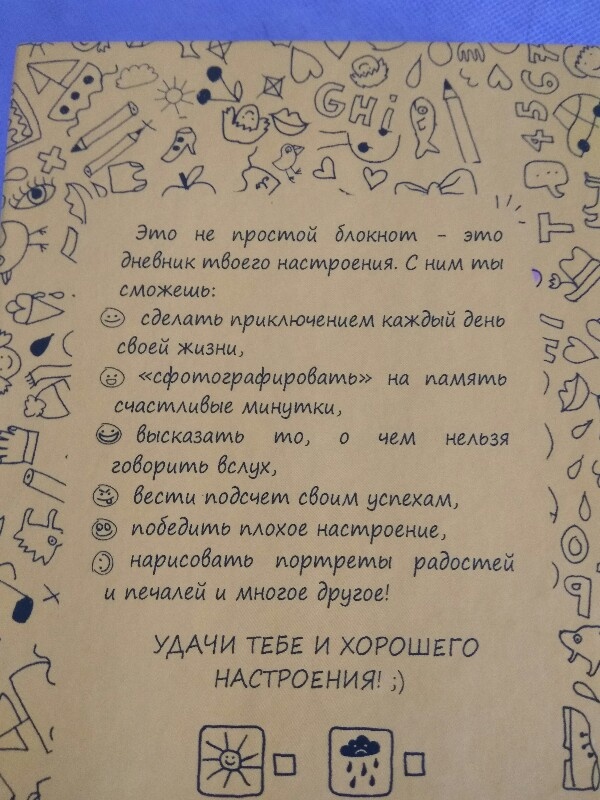 GHi
4567
Это не простой блокнот - это
дневник твоего настроения. С ним ты
сможешь:
сделать приключением каждый день
своей жизни,
«сфотографировать» на память
счастливые минутки,
высказать то, о чем нельзя
говорить вслух,
вести подсчет своим успехам,
победить плохое настроение,
нарисовать портреты радостей
и печалей и многое другое!
УДАЧИ ТЕБЕ И ХОРОШЕГО
НАСТРОЕНИЯ! ;)